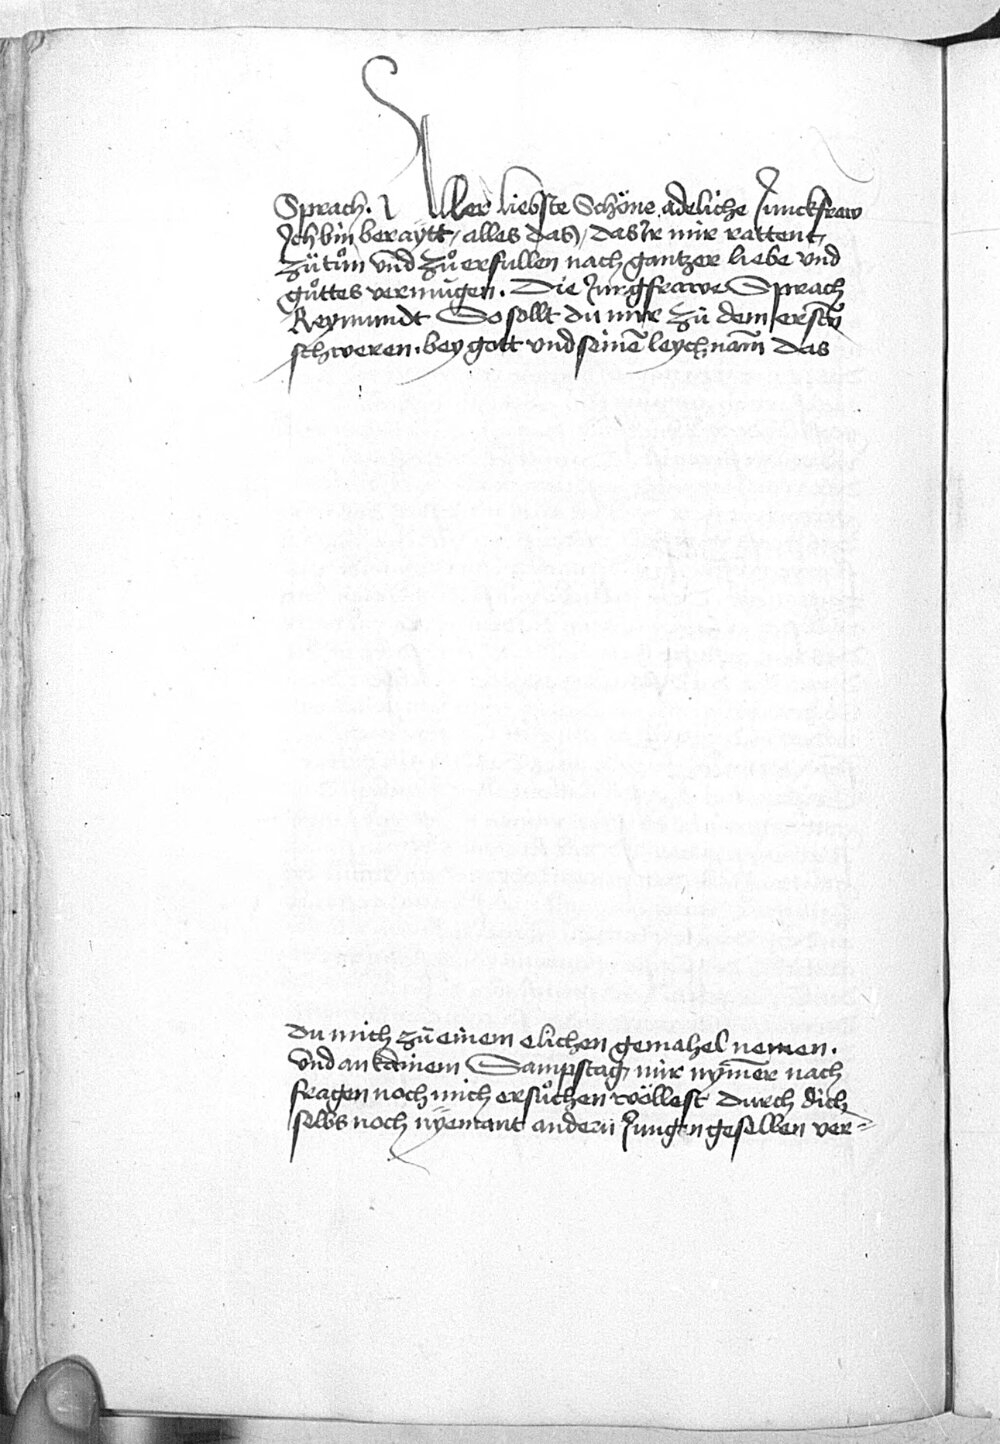 Sprach. Aller liebste Schöne adeliche Junckfraw
Ich bin beraÿtt, alles das, das Ir mir rattent,
zütůn vnd zů erfullen nach gantzer liebe vnd
gůttes vermügen. Die Jungfrawe Sprach
Reymundt So sollt du mir zü dem ersten̄
schweren. bey gott vnd seinē leychnam̄ das
du mich zü einem elichen gemahel nemen.
vnd an kainem Sampstag, mir nym̄er nach
fragen noch mich ersůchen wöllest durch dich
selbs noch nÿemant andern Jungen gesellen ver=